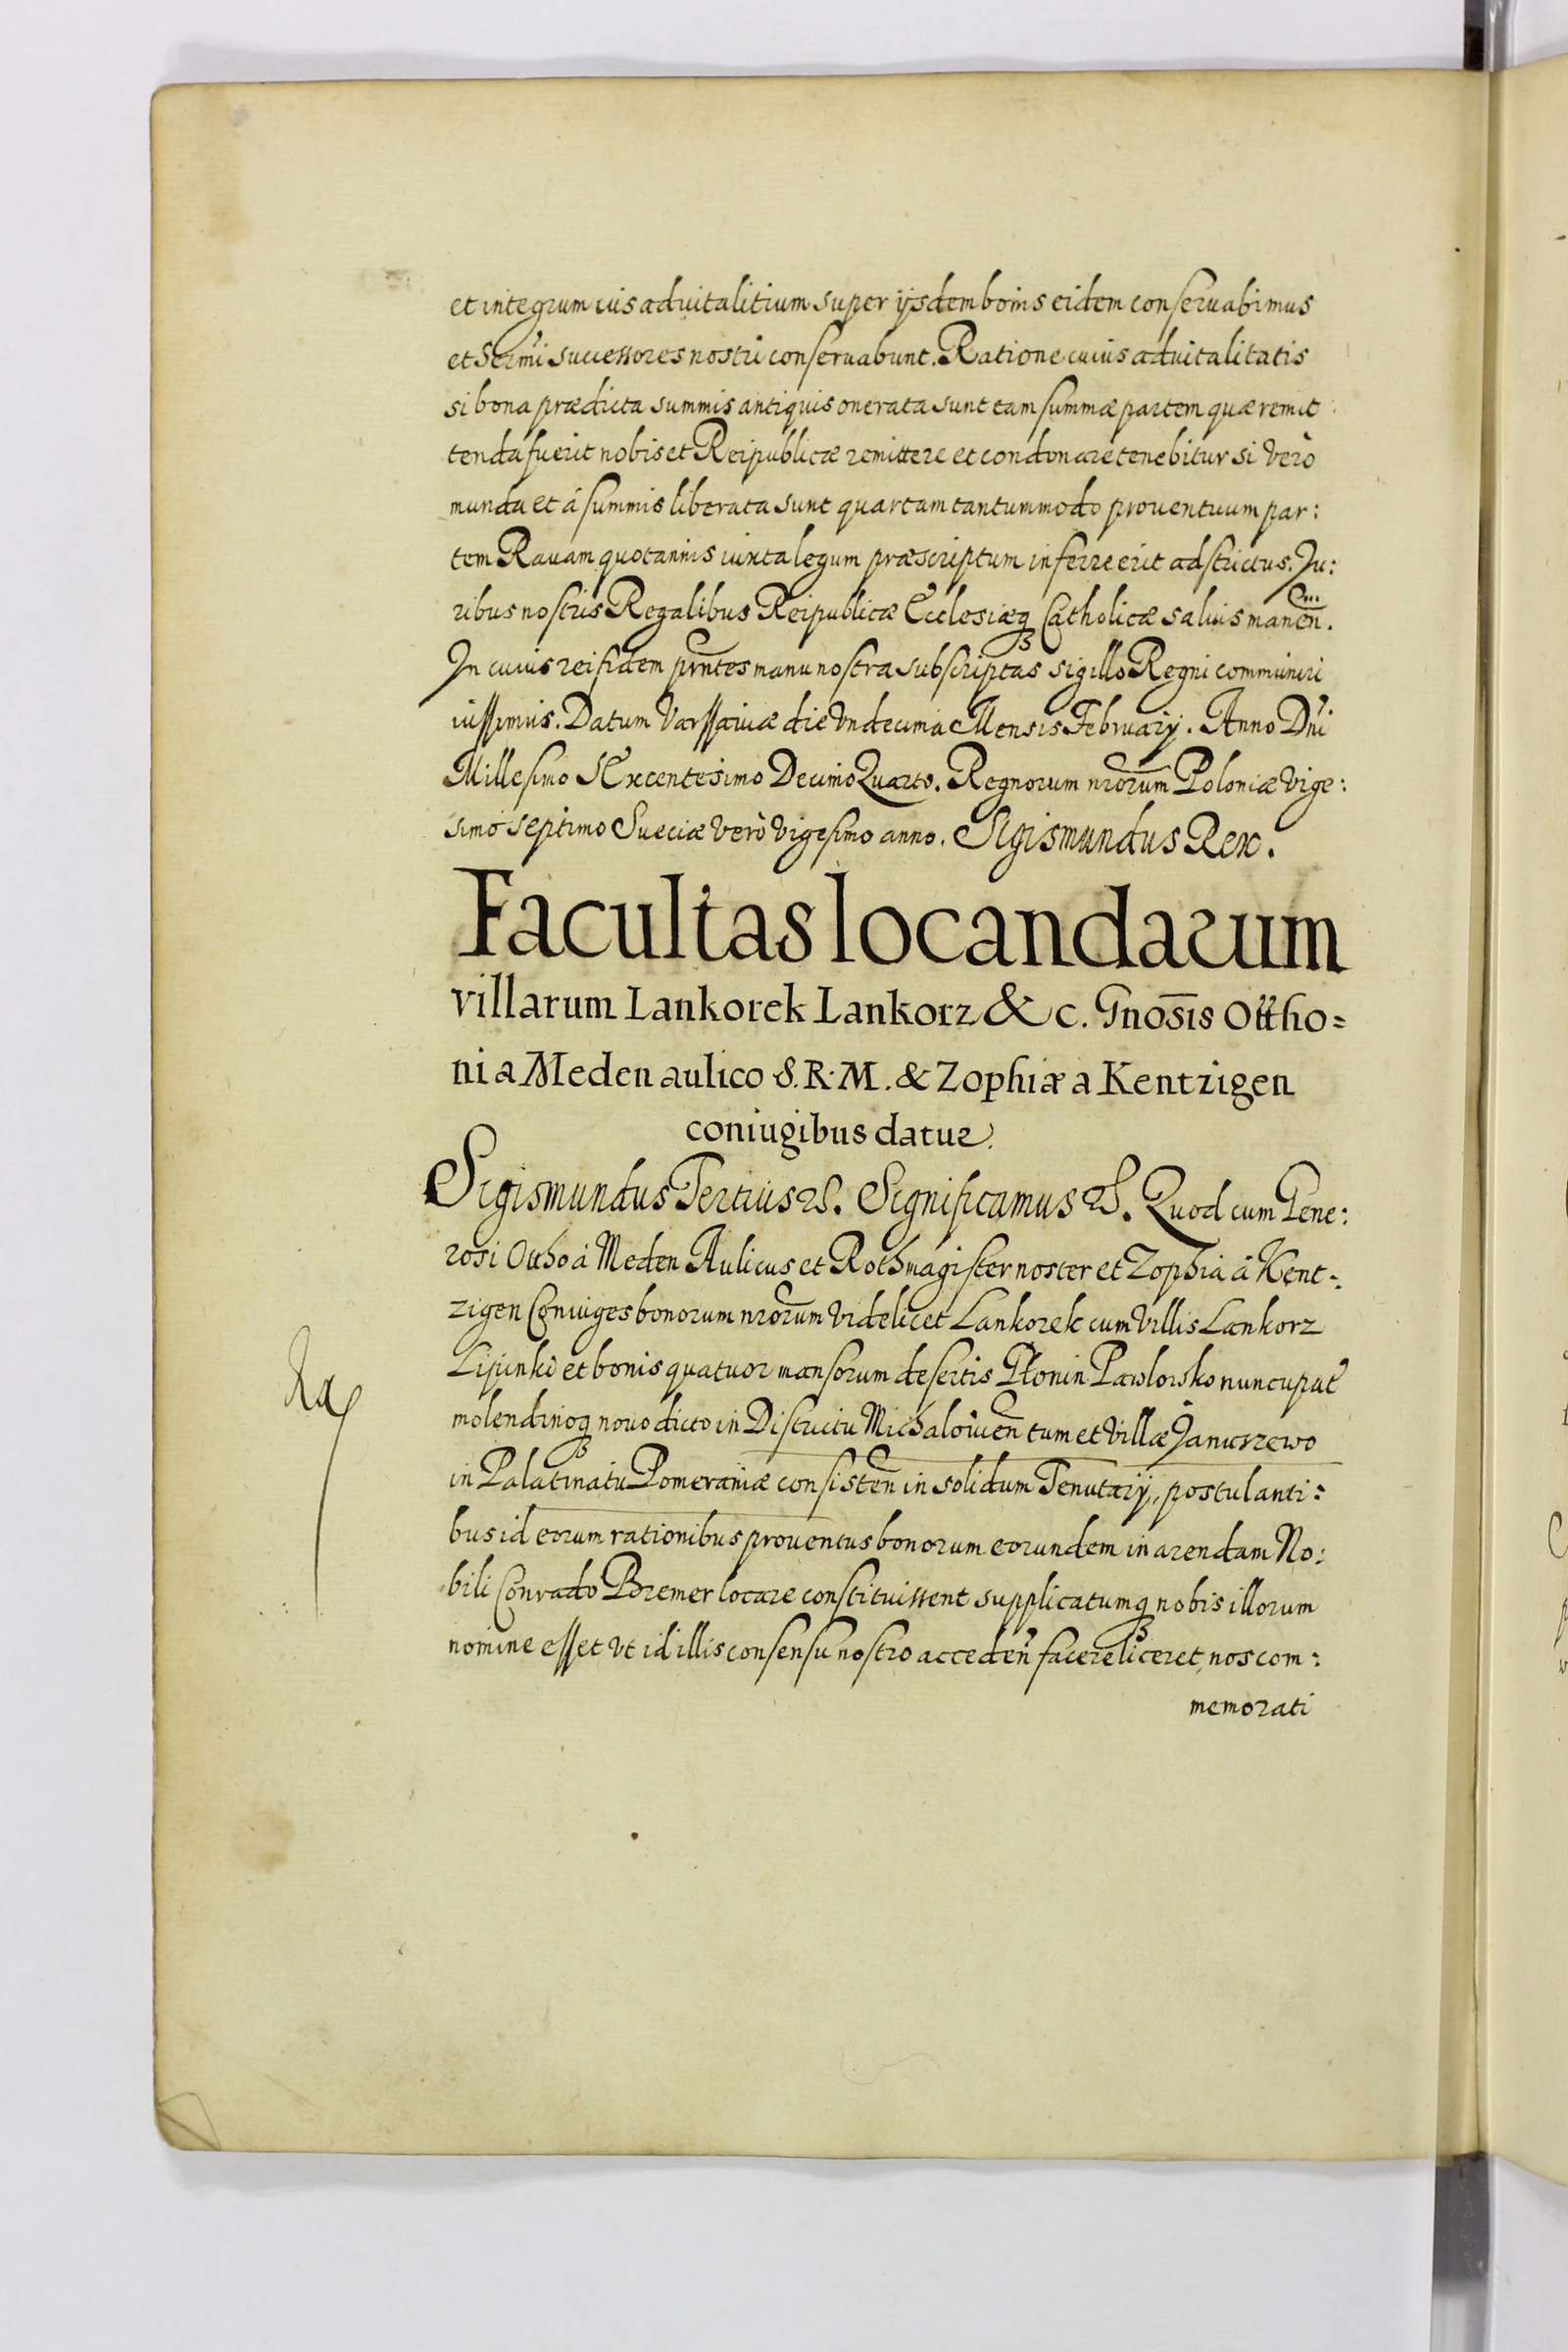 et integrum ius aduitalitium super ijsdem bonis eidem conseruabimus
et Sermi successores nostri conseruabunt. Ratione cuius aduitalitatis
si bona prædicta summis antiquis onerata sunt eam summæ partem quæ remit
tenda fuerit nobis et Reipublicæ remittere et condonare tenebitur si verò
munda et à summis liberata sunt quartam tantummodo prouentuum par:
tem Rauam quotannis iuxta legum præscriptum inferre erit adstrictus. Ju:
ribus nostris Regalibus Reipublicæ Ecclesiæq3 Catholicæ saluis manen̄.
In cuius rei fidem prn̄tes manu nostra subscriptas sigillo Regni communiri
iussimus. Datum Varssauiæ die vndecima Mensis February. Anno Dni
Millesimo SExcentesimo Decimo Quarto. Regnorum nrōrum Poloniæ vige:
simo septimo Sueciæ verò vigesimo anno. Sigismundus Rex.
Facultas locandarum
villarum Lankorek Lankorz & c. Gnosis Ottho=
ni a Meden aulico S. R. M. & Zophiæ a Kentzigen
coniugibus datur.
Sigismundus Tertius &. Significamus &. Quod cum Gene:
rosi Ottho à Meden Aulicus et Rothmagister noster et Zophia à Kent:
zigen Coniuges bonorum nrōrum videlicet Lankorek cum villis Lankorz
Lipinki et bonis quatuor mansorum desertis Płonin Pawlowsko nuncupat
molendinoq3 nouo dicto in Districtu Michalouien̄ tum et villæ Janurzewo
in Palatinatu Pomeraniæ consisten̄ in solidum Tenutarij, postulanti:
bus id eorum rationibus prouentus bonorum eorundem in arendam No:
bili Conrado Bremer locare constituissent supplicatumq3 nobis illorum
nomine esset vt id illis consensu nostro acceden̄ facere liceret, nos com:
memorati